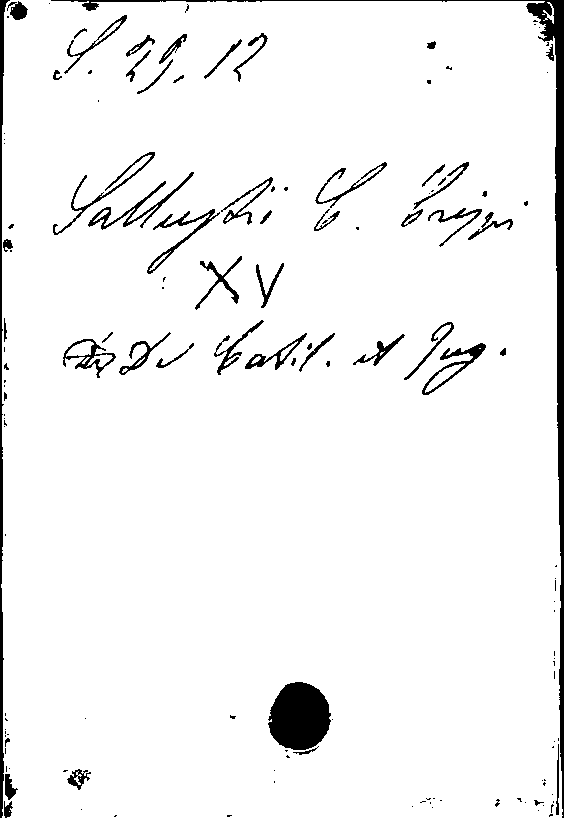 S. 29, 12
Sallustii C. Crispi
XV
De Catil. et Jug.